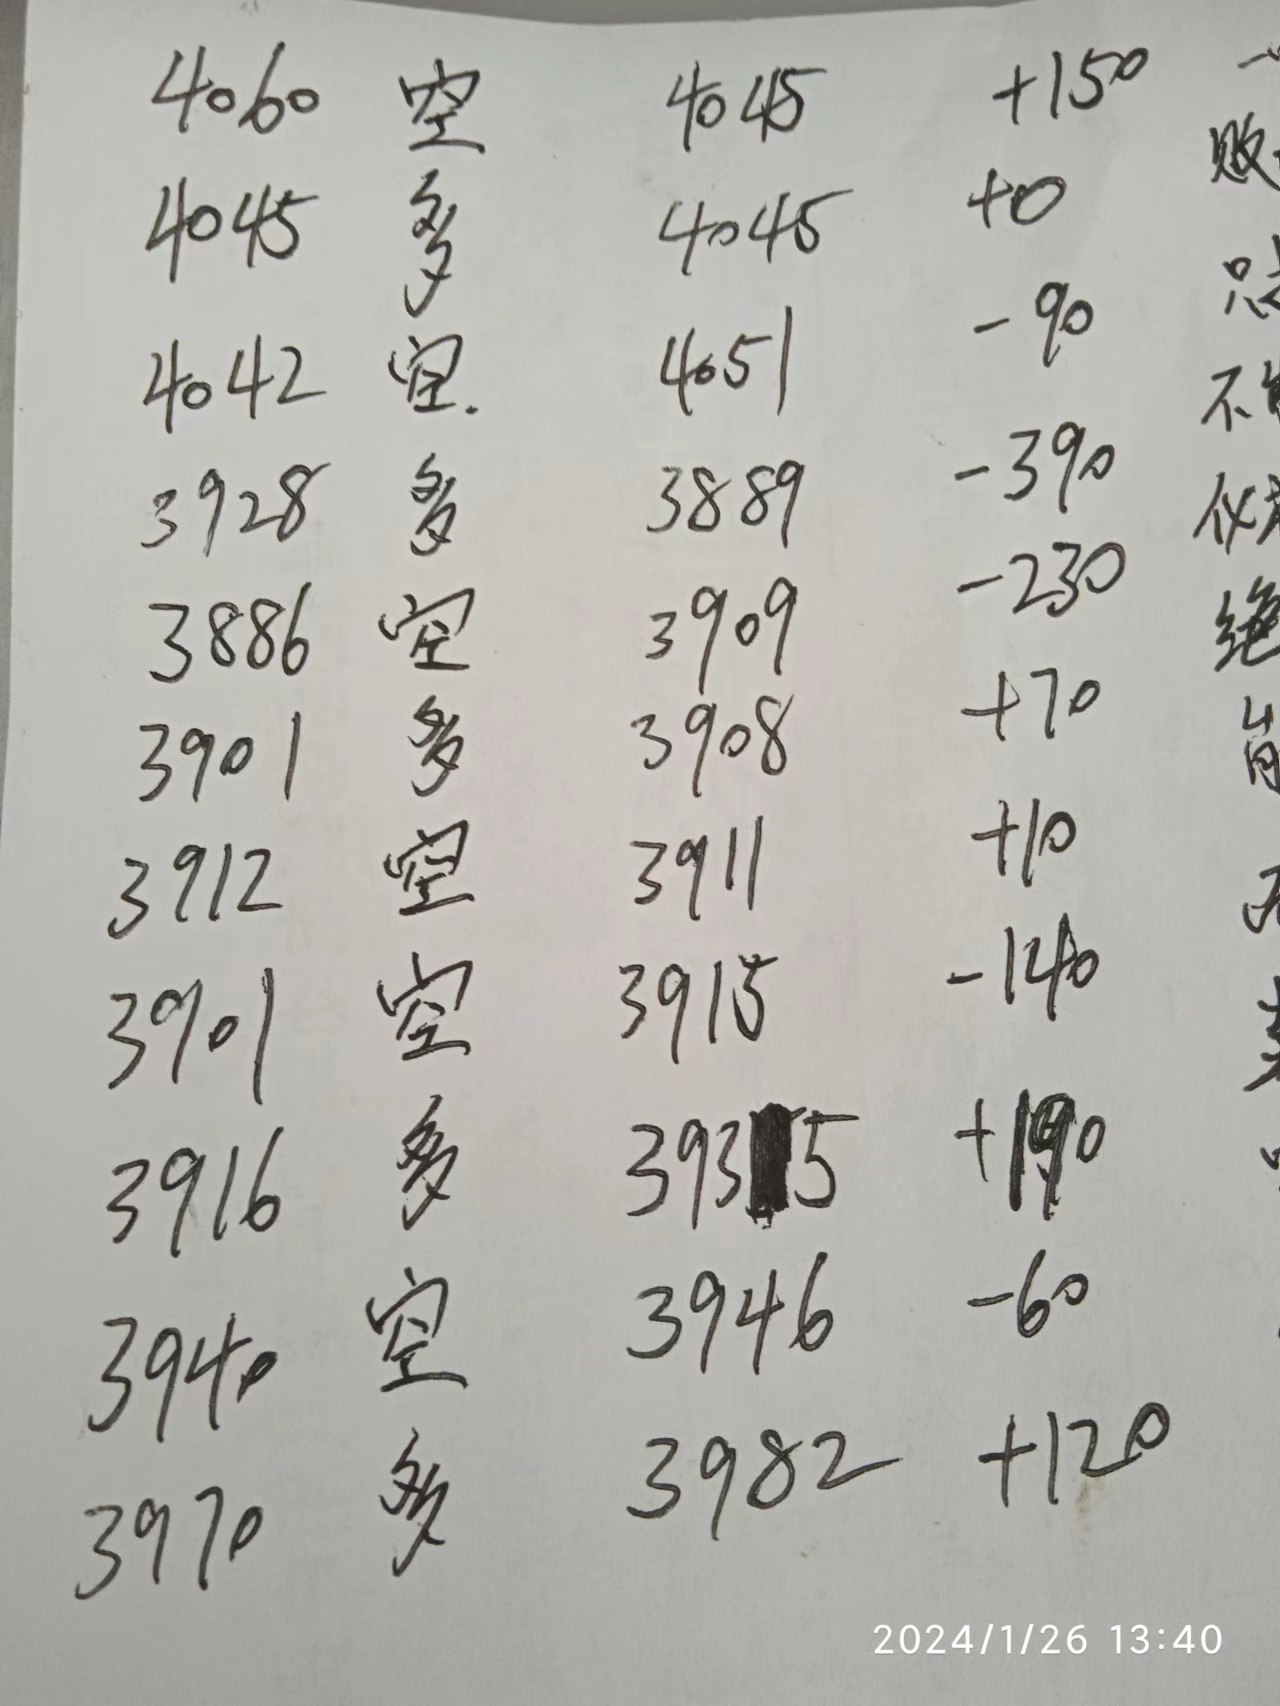 4060 空 4045 +150
4045 多 4045 +0
4042 空. 4051 -90
3928 多 3889 -390
3886 空 3909 -230
3901 多 3908 +70
3912 空 3911 +10
3901 空 3915 -140
3916 多 3935 +190
3940 空 3946 -60
3970 多 3982 +120
败
只
不
仪
绝
2024/1/26 13:40